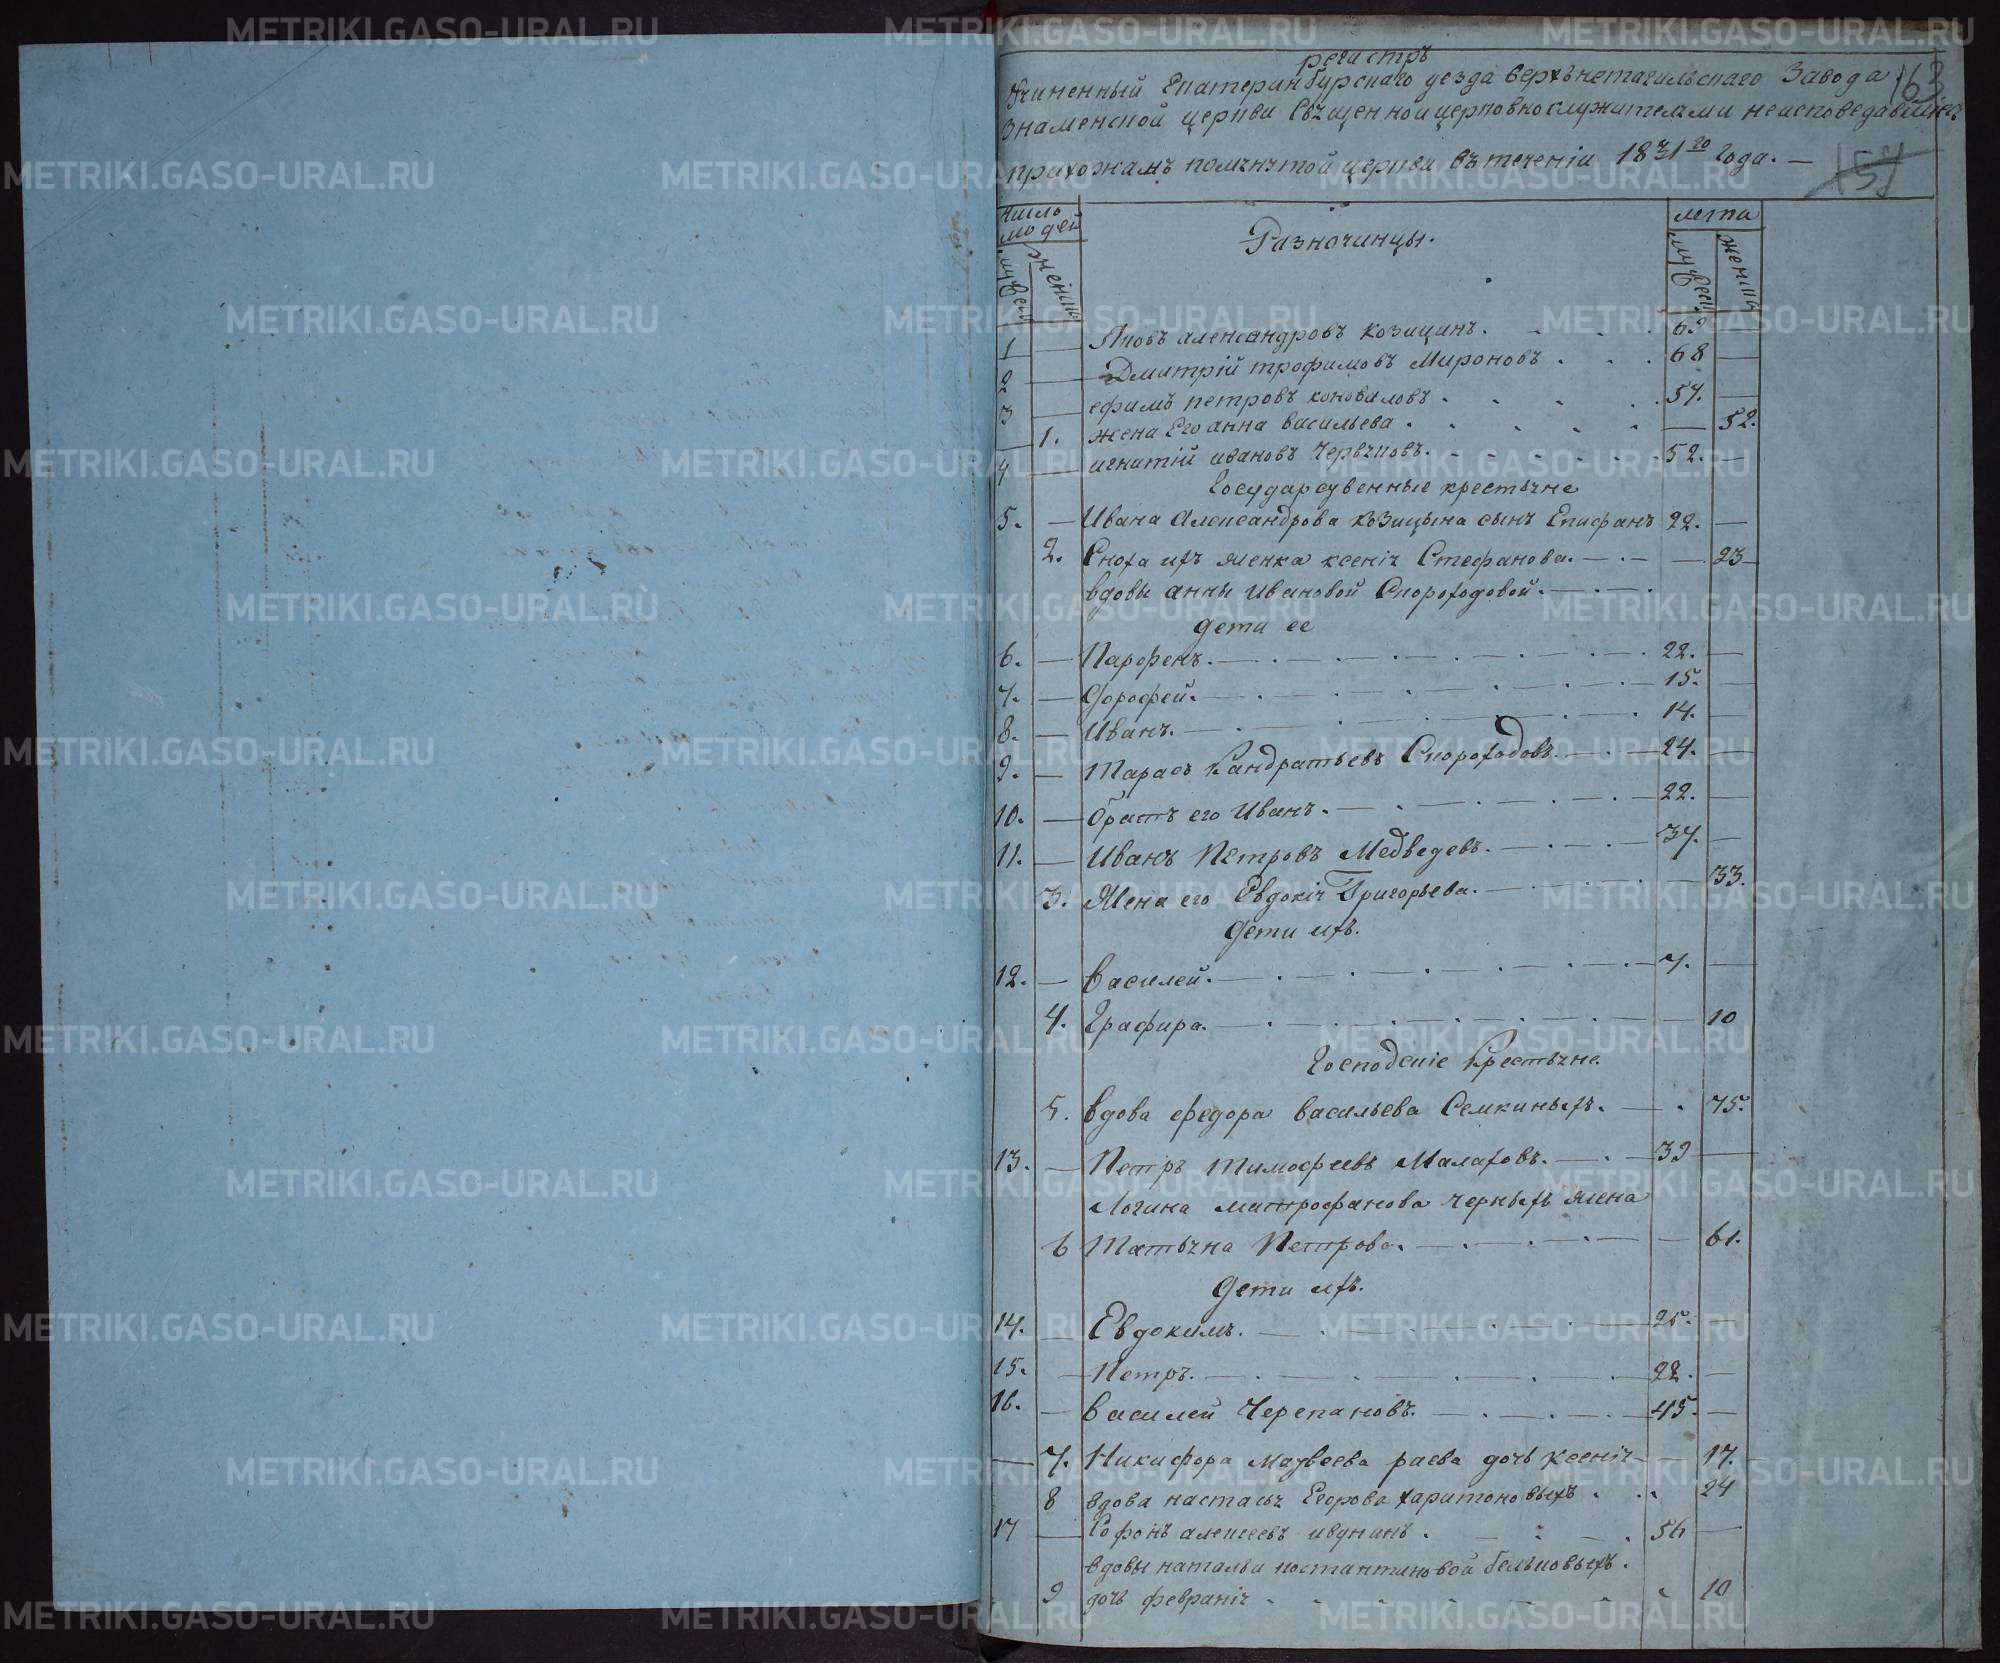 регистръ
Учиненный Екатеринбурскаго уезда верхънетагильскаго Завода
163
Знаменской церкви Свѣщенноицерковнослужителями неисповедавшихъ
прихожамъ помянутой церкви въ теченіи 1841го года. —
157
число людей
Разночинцы.
лета
мужеск
женска
мужеск
женска
1 — Яковъ александровъ козицинъ. 69 —
2 — Дмитрій трофимовъ Мироновъ . . . 68 —
3 — ефимъ петровъ коновиловъ . . . . 54. —
— 1. жена Его анна васильева . . . . — 52.
4 — игнатій ивановъ Червяковъ. 52. —
Государсувенные крестьяне
5. — Ивана Александрова козицына сынъ Епифанъ 22. —
2. Сноха ихъ женка ксенія Стефанова. — 23
вдовы анны Ивановой Скороходовой.
дети ее
6. — Парфенъ. 22. —
7. — Дорофей. 15. —
8. — Иванъ. 14. —
9. — Тарасъ Кандратьевъ Скороходовъ 24. —
10. — братъ его Иванъ. 22. —
11. — Иванъ Петровъ Медведевъ. 34. —
3. Жена его Евдокія Григорьева. — 33.
дети ихъ.
12. — Василей. 7. —
4. Графира. — 10
Господскіе Крестьяне.
5. вдова федора васильева Семкиныхъ. 75.
13. — Петръ Тимофеевъ Малаховъ. 39 —
Логина митрофанова черныхъ жена
6 Татьяна Петрова. — 61.
дети ихъ.
14. — Евдокимъ. 25. —
15. — Петръ. 22. —
16. — Василей Черепановъ. 45. —
— 7. Никифора Мадвеева раева дочь ксенія — 17.
8 вдова настасья Егорова харитоновыхъ . . . 24
17 — Софонъ алексеевъ ивукинъ . 56 —
вдовы натальи костантиновой бельковыхъ .
9 дочь февранія . . . . 10
METRIKI.GASO-URAL.RU